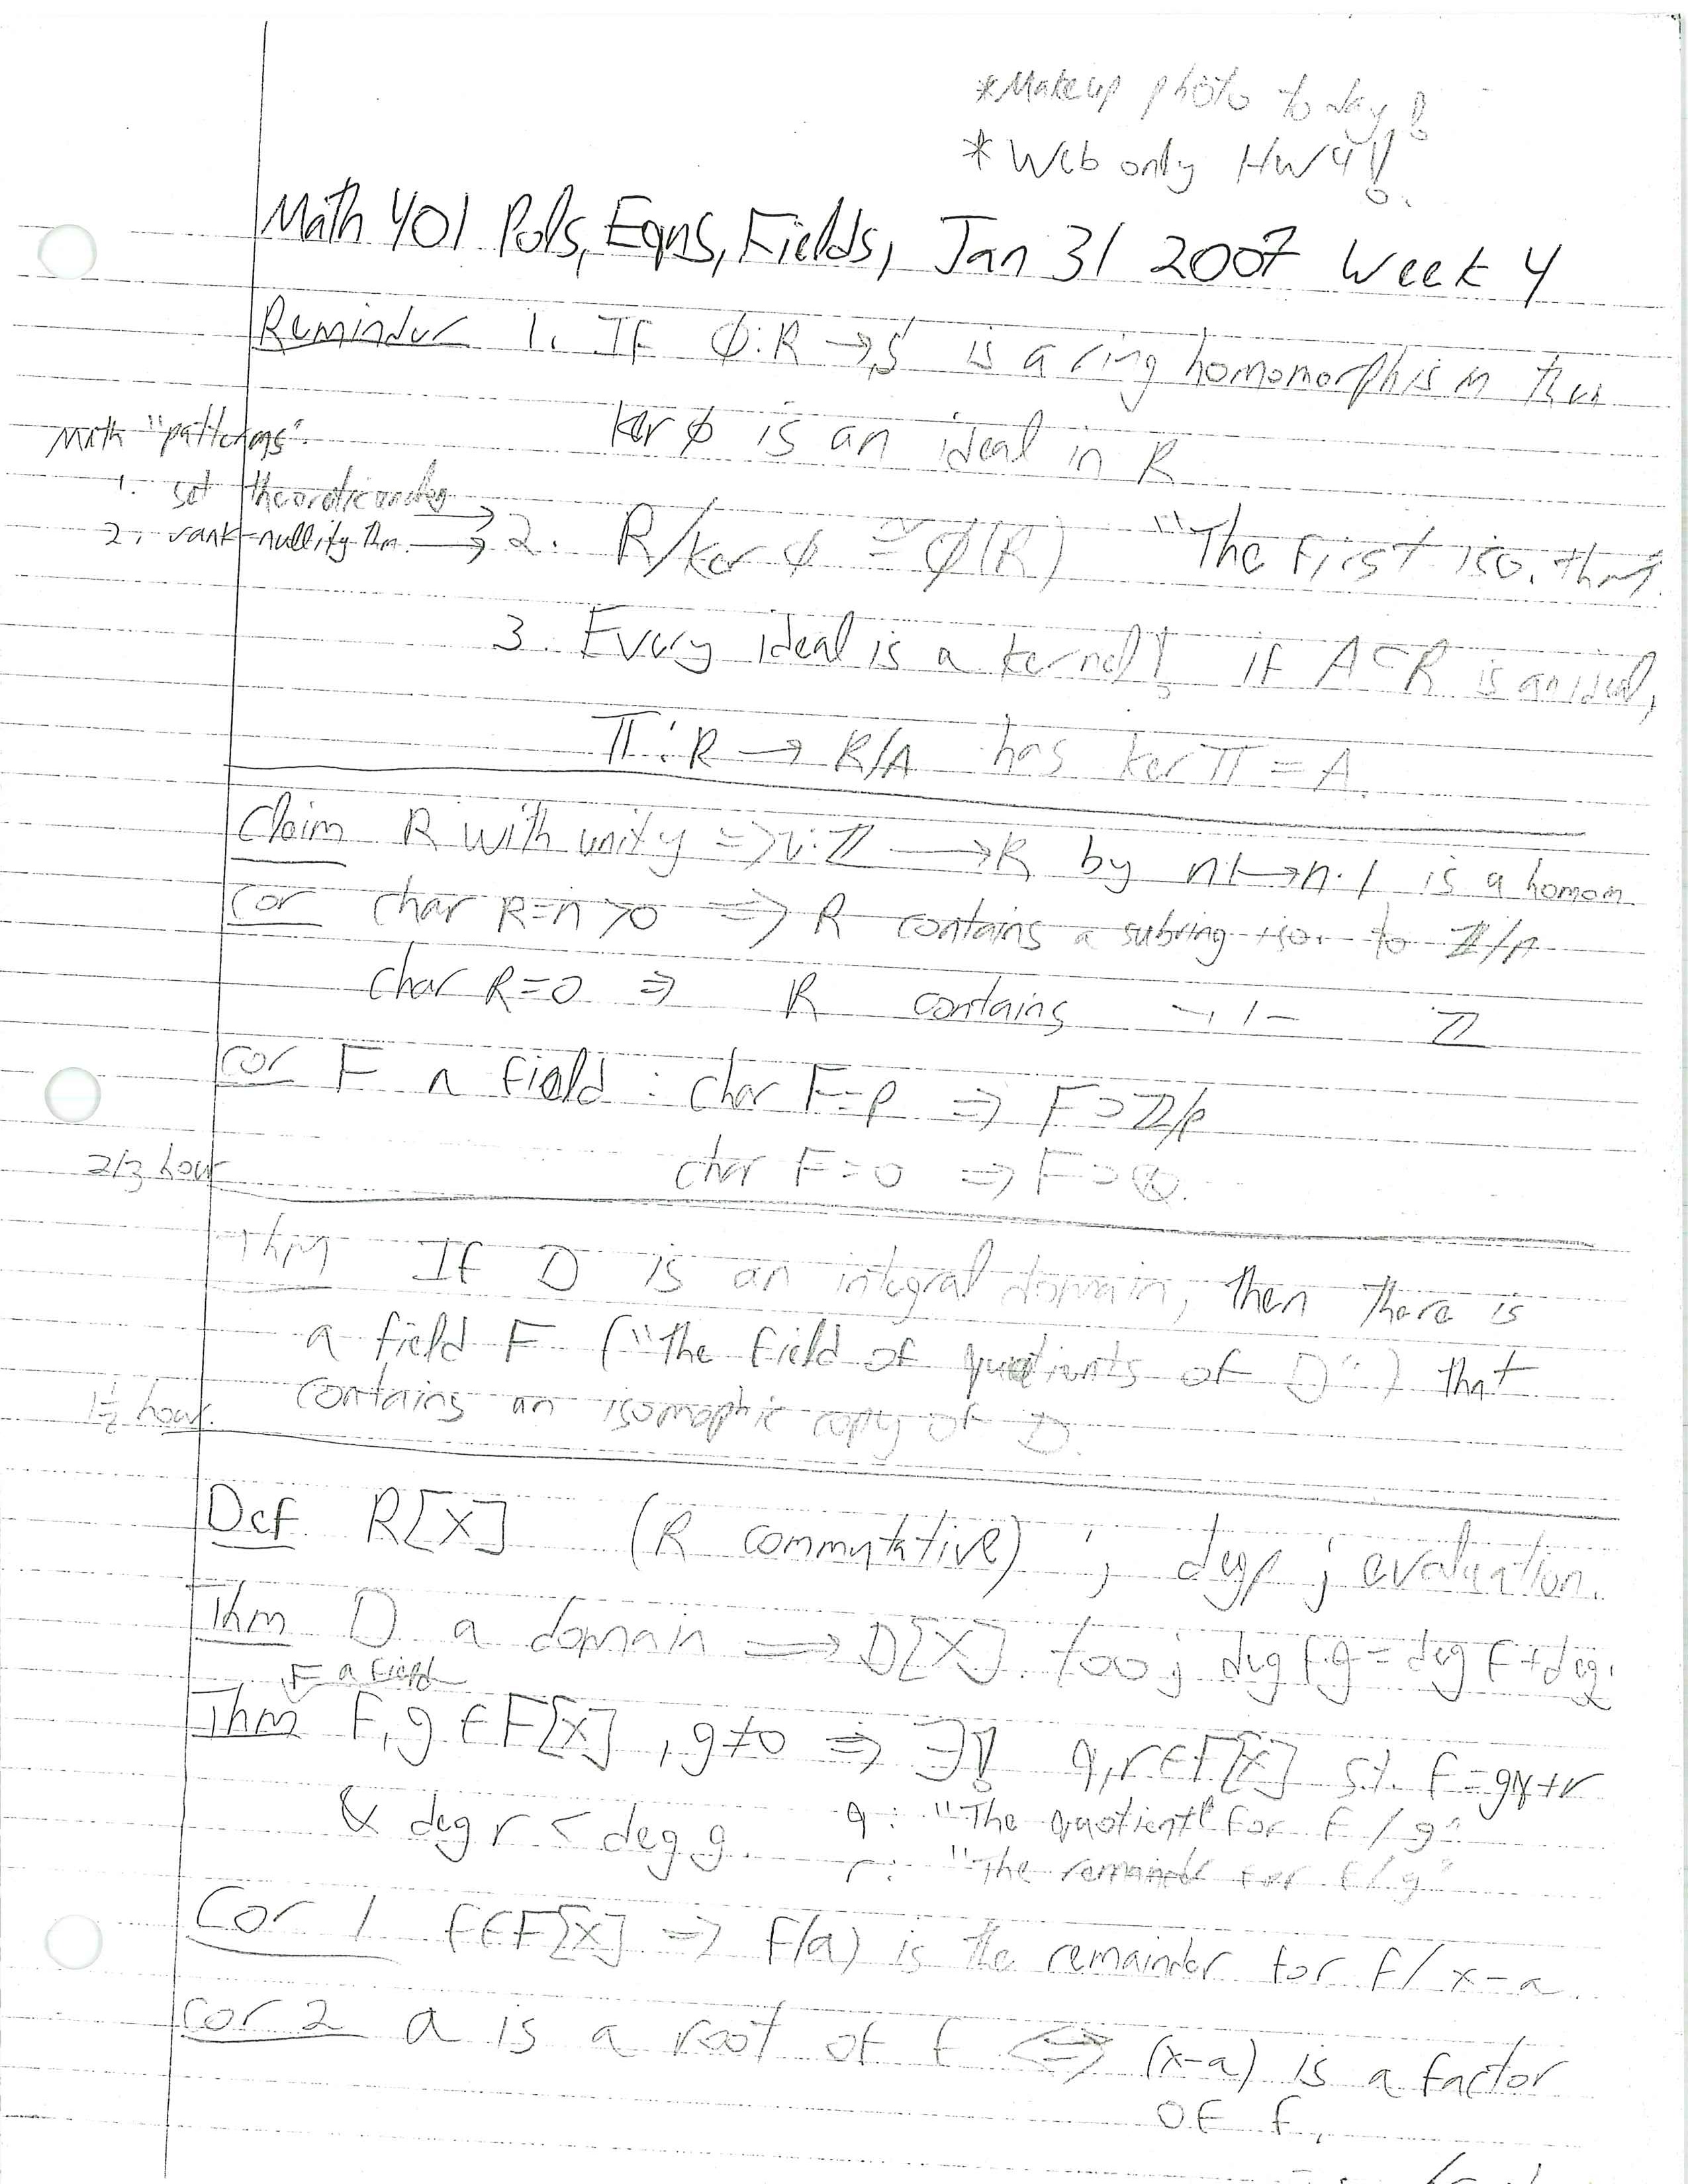 *Makeup photo today!
* Web only HW4!
Math 401 Pols, Eqns, Fields, Jan 31 2007 Week 4
Reminder 1. If φ:R→S is a ring homomorphism then
ker φ is an ideal in R
Math "patterns":
1. set theoretic
2. rank-nullity thm. → 2. R/ker φ ≅ φ(R) "The first iso. thm"
3. Every ideal is a kernel! if A⊂R is an ideal,
π:R → R/A has ker π = A.
Claim R with unity => ι:ℤ → R by n ↦ n·1 is a homom
Cor char R=n>0 => R contains a subring iso. to ℤ/n
char R=0 => R contains -11- ℤ
Cor F a field: char F=p => F⊃ℤ/p
char F=0 => F⊃ℚ.
2/3 hour
Thm If D is an integral domain, then there is
a field F ("the field of quotients of D") that
contains an isomophic copy of D.
1½ hour.
Def R[x] (R commutative); deg p; evaluation.
Thm D a domain => D[x] too; deg f·g = deg f + deg g
F a field
Thm f,g ∈ F[x], g≠0 => ∃! q,r∈F[x] s.t. f=gq+r
& deg r < deg g. q: "The quotient for f/g"
r: "The remainder for f/g"
Cor 1 f∈F[x] => f(a) is the remainder for f/x-a.
Cor 2 a is a root of f <=> (x-a) is a factor
of f.